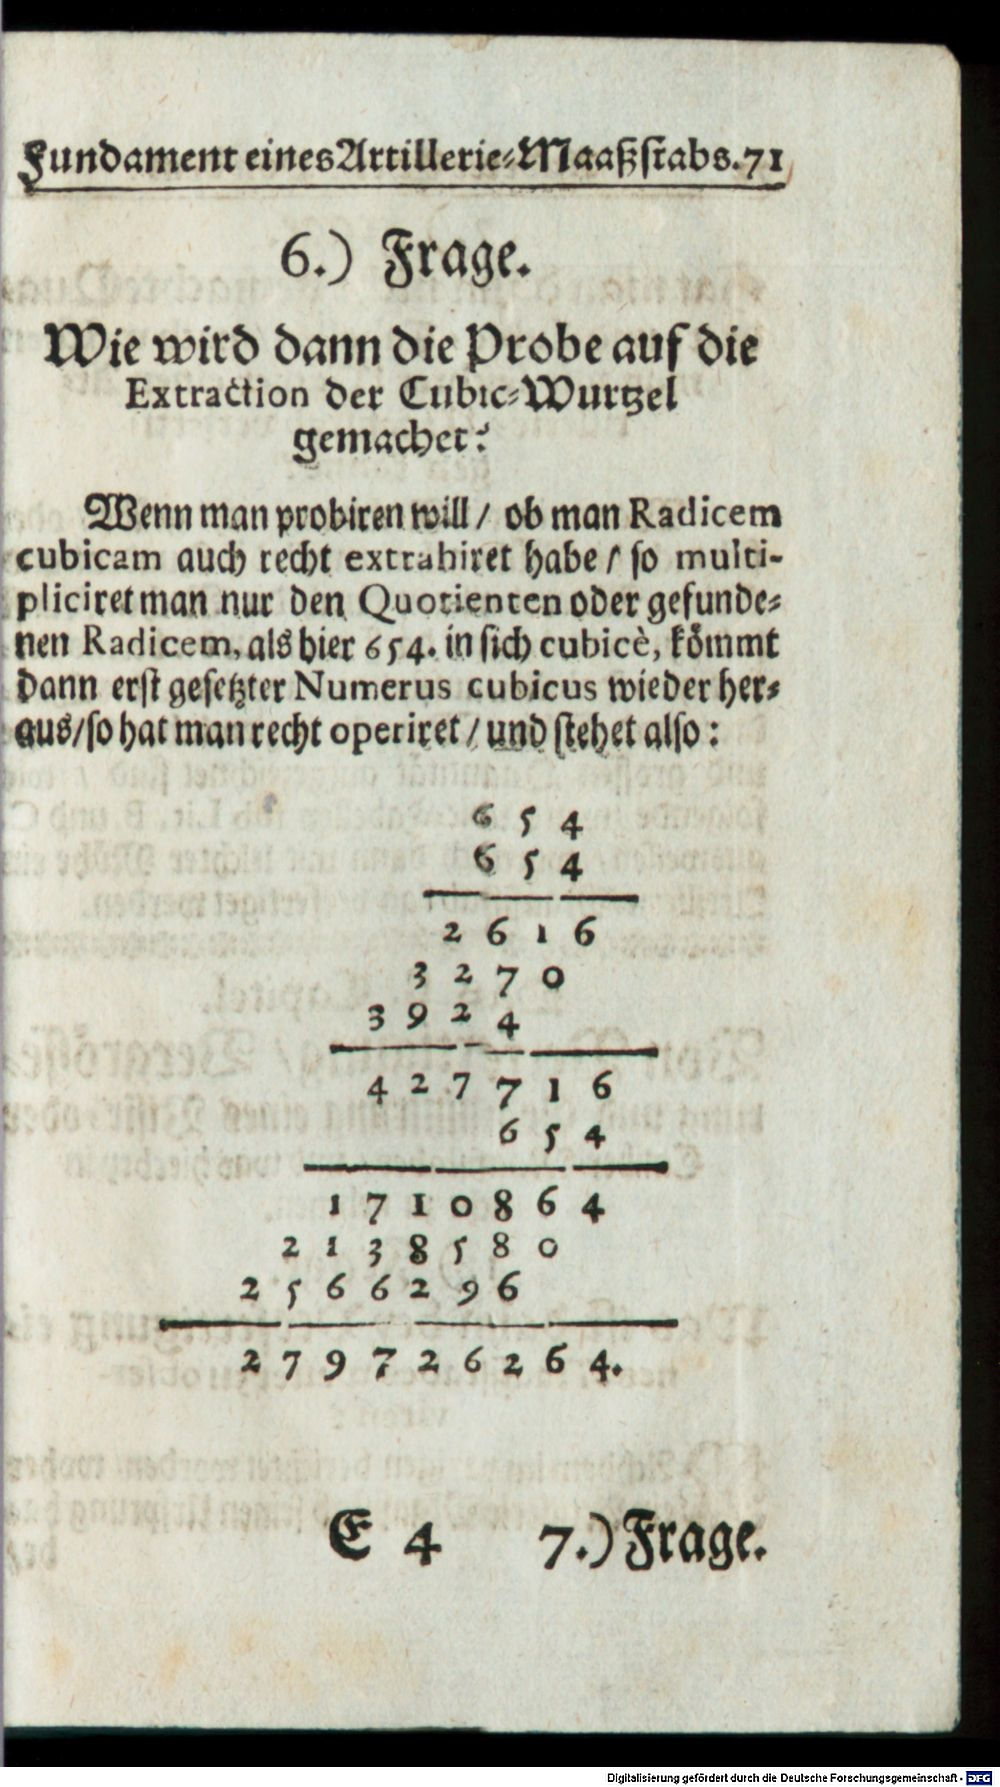 Fundament eines Artillerie-Maaßstabs. 71
6.) Frage.
Wie wird dann die Probe auf die
Extraction der Cubic-Wurtzel
gemachet?
Wenn man probiren will / ob man Radicem
cubicam auch recht extrahiret habe / so multi-
pliciret man nur den Quotienten oder gefunde-
nen Radicem, als hier 654. in sich cubicè, kömmt
dann erst gesetzter Numerus cubicus wieder her-
aus / so hat man recht operiret / und stehet also:
6 5 4
6 5 4
2 6 1 6
3 2 7 0
3 9 2 4
4 2 7 7 1 6
6 5 4
1 7 1 0 8 6 4
2 1 3 8 5 8 0
2 5 6 6 2 9 6
2 7 9 7 2 6 2 6 4.
E 4 7.) Frage.
Digitalisierung gefördert durch die Deutsche Forschungsgemeinschaft - DFG